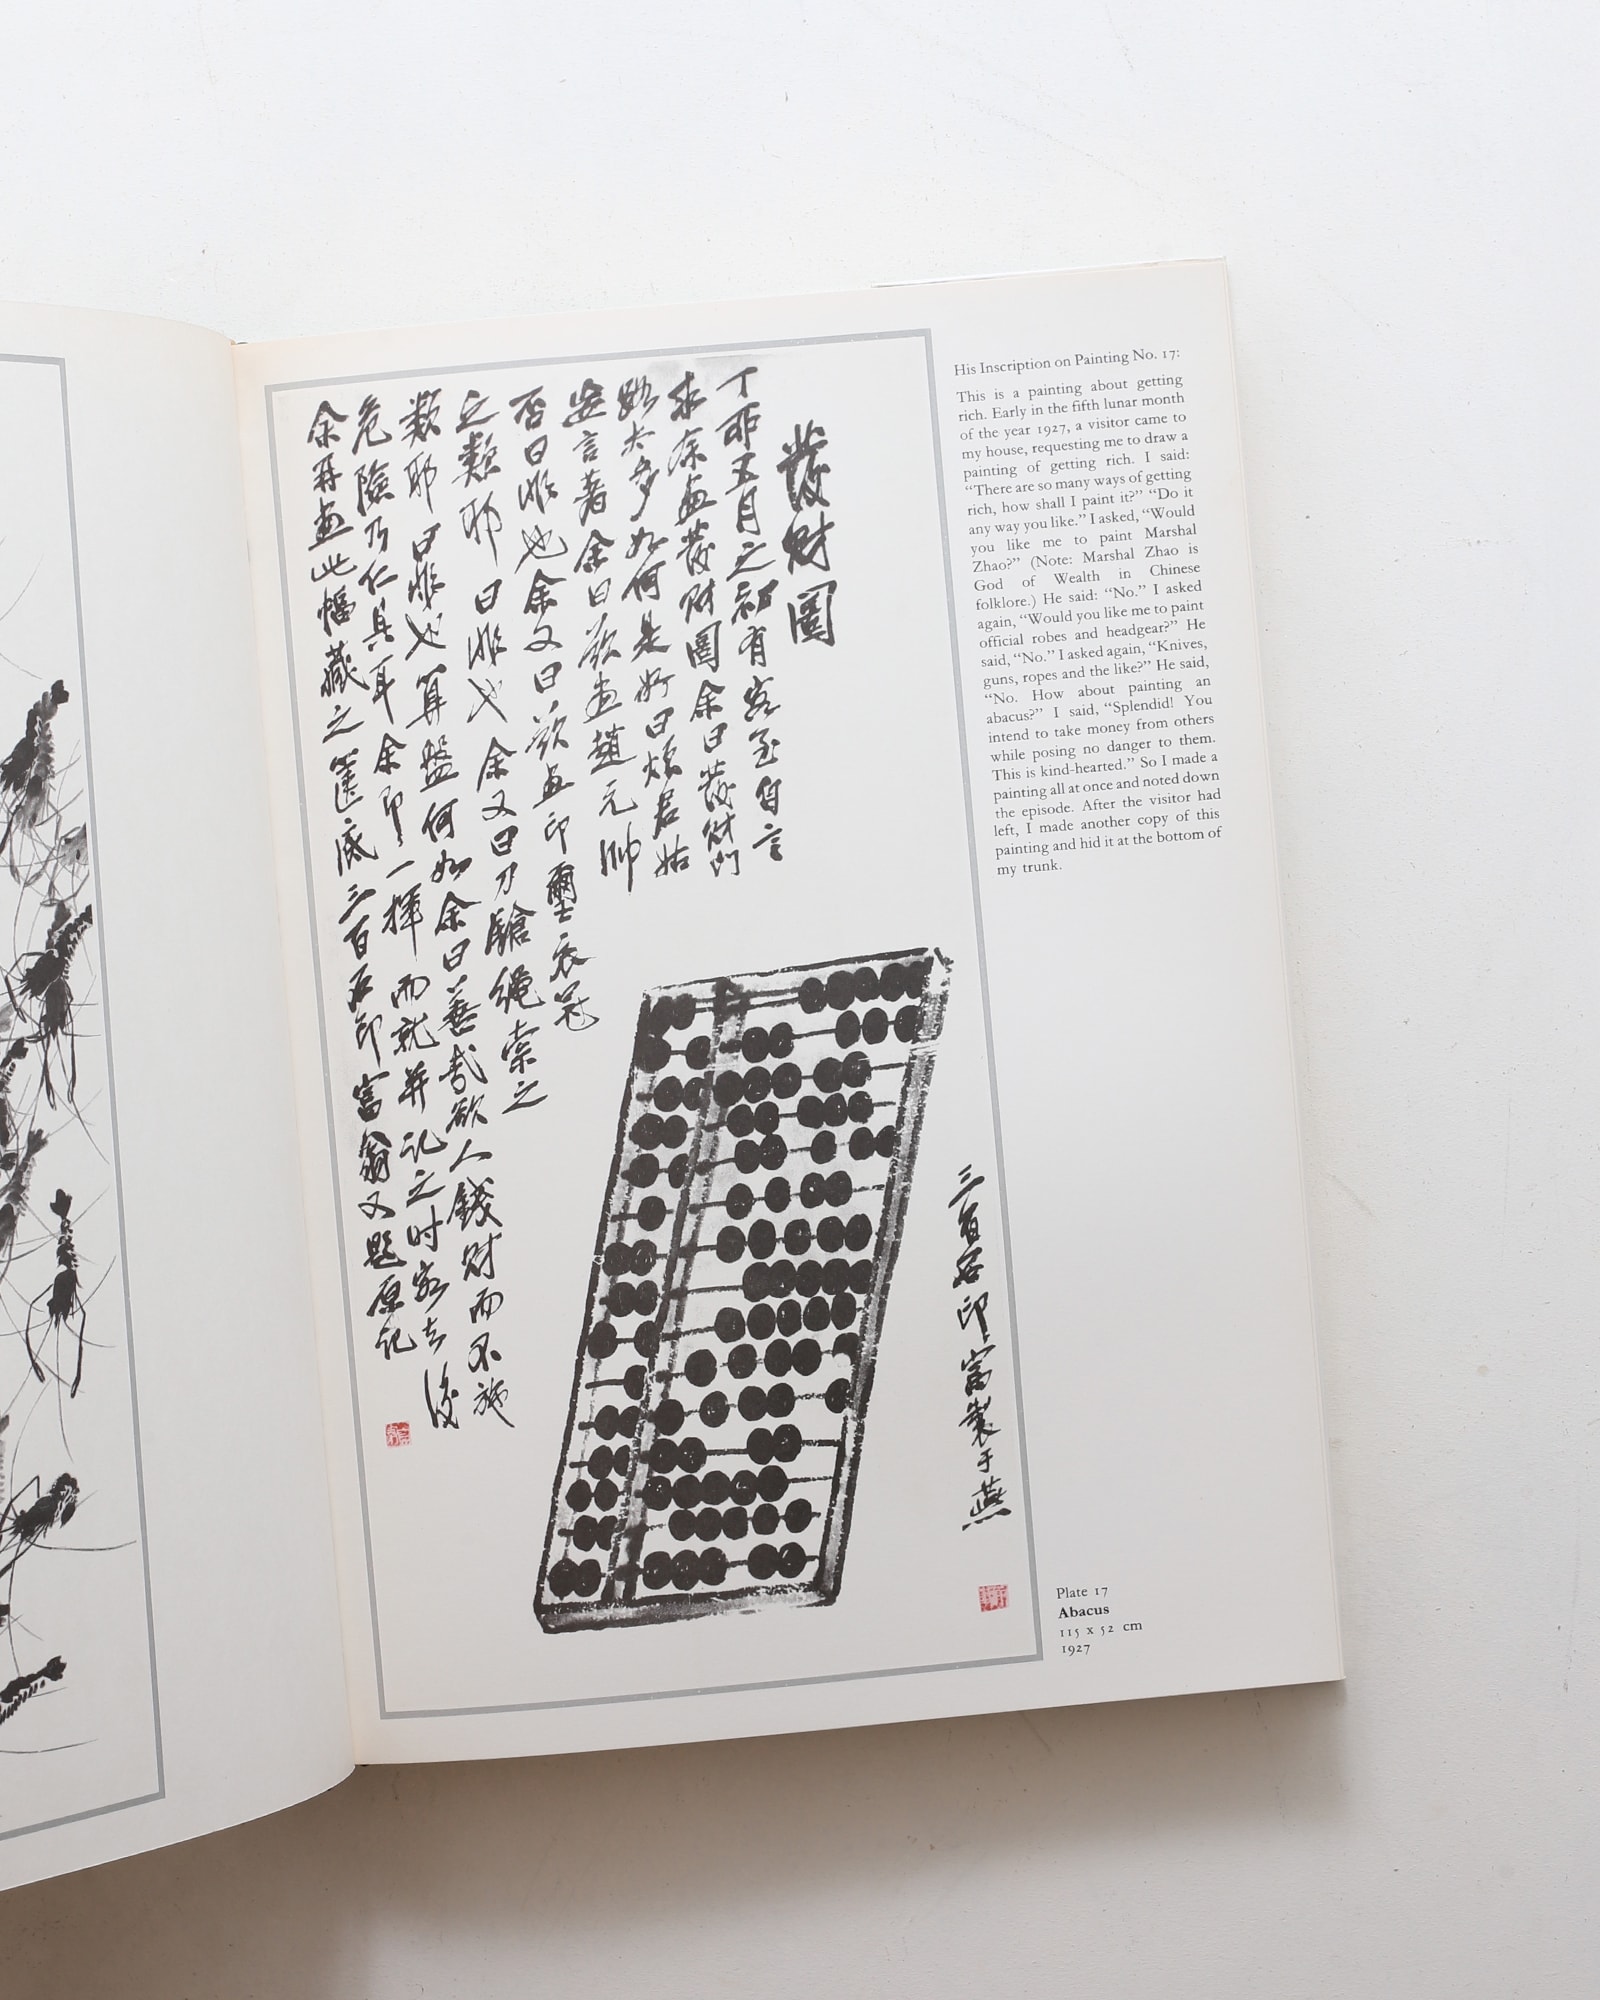 發財圖
丁卯五月之初有客至自言
求余畫發財圖余曰發財門
路太多如何是好曰煩君姑
妄言著余曰欲畫趙元帥
否曰非也余又曰欲畫印璽衣冠
之類耶曰非也余又曰刀鎗繩索之
類耶曰非也算盤何如余曰善哉欲人錢財而不施
危險乃仁具耳余即一揮而就并記之时客去後
余再畫此幅藏之篋底三百石印富翁又題原記
三百石印富製于燕
His Inscription on Painting No. 17:
This is a painting about getting
rich. Early in the fifth lunar month
of the year 1927, a visitor came to
my house, requesting me to draw a
painting of getting rich. I said:
“There are so many ways of getting
rich, how shall I paint it?” “Do it
any way you like.” I asked, “Would
you like me to paint Marshal
Zhao?” (Note: Marshal Zhao is
God of Wealth in Chinese
folklore.) He said: “No.” I asked
again, “Would you like me to paint
official robes and headgear?” He
said, “No.” I asked again, “Knives,
guns, ropes and the like?” He said,
“No. How about painting an
abacus?” I said, “Splendid! You
intend to take money from others
while posing no danger to them.
This is kind-hearted.” So I made a
painting all at once and noted down
the episode. After the visitor had
left, I made another copy of this
painting and hid it at the bottom of
my trunk.
Plate 17
Abacus
115 x 52 cm
1927